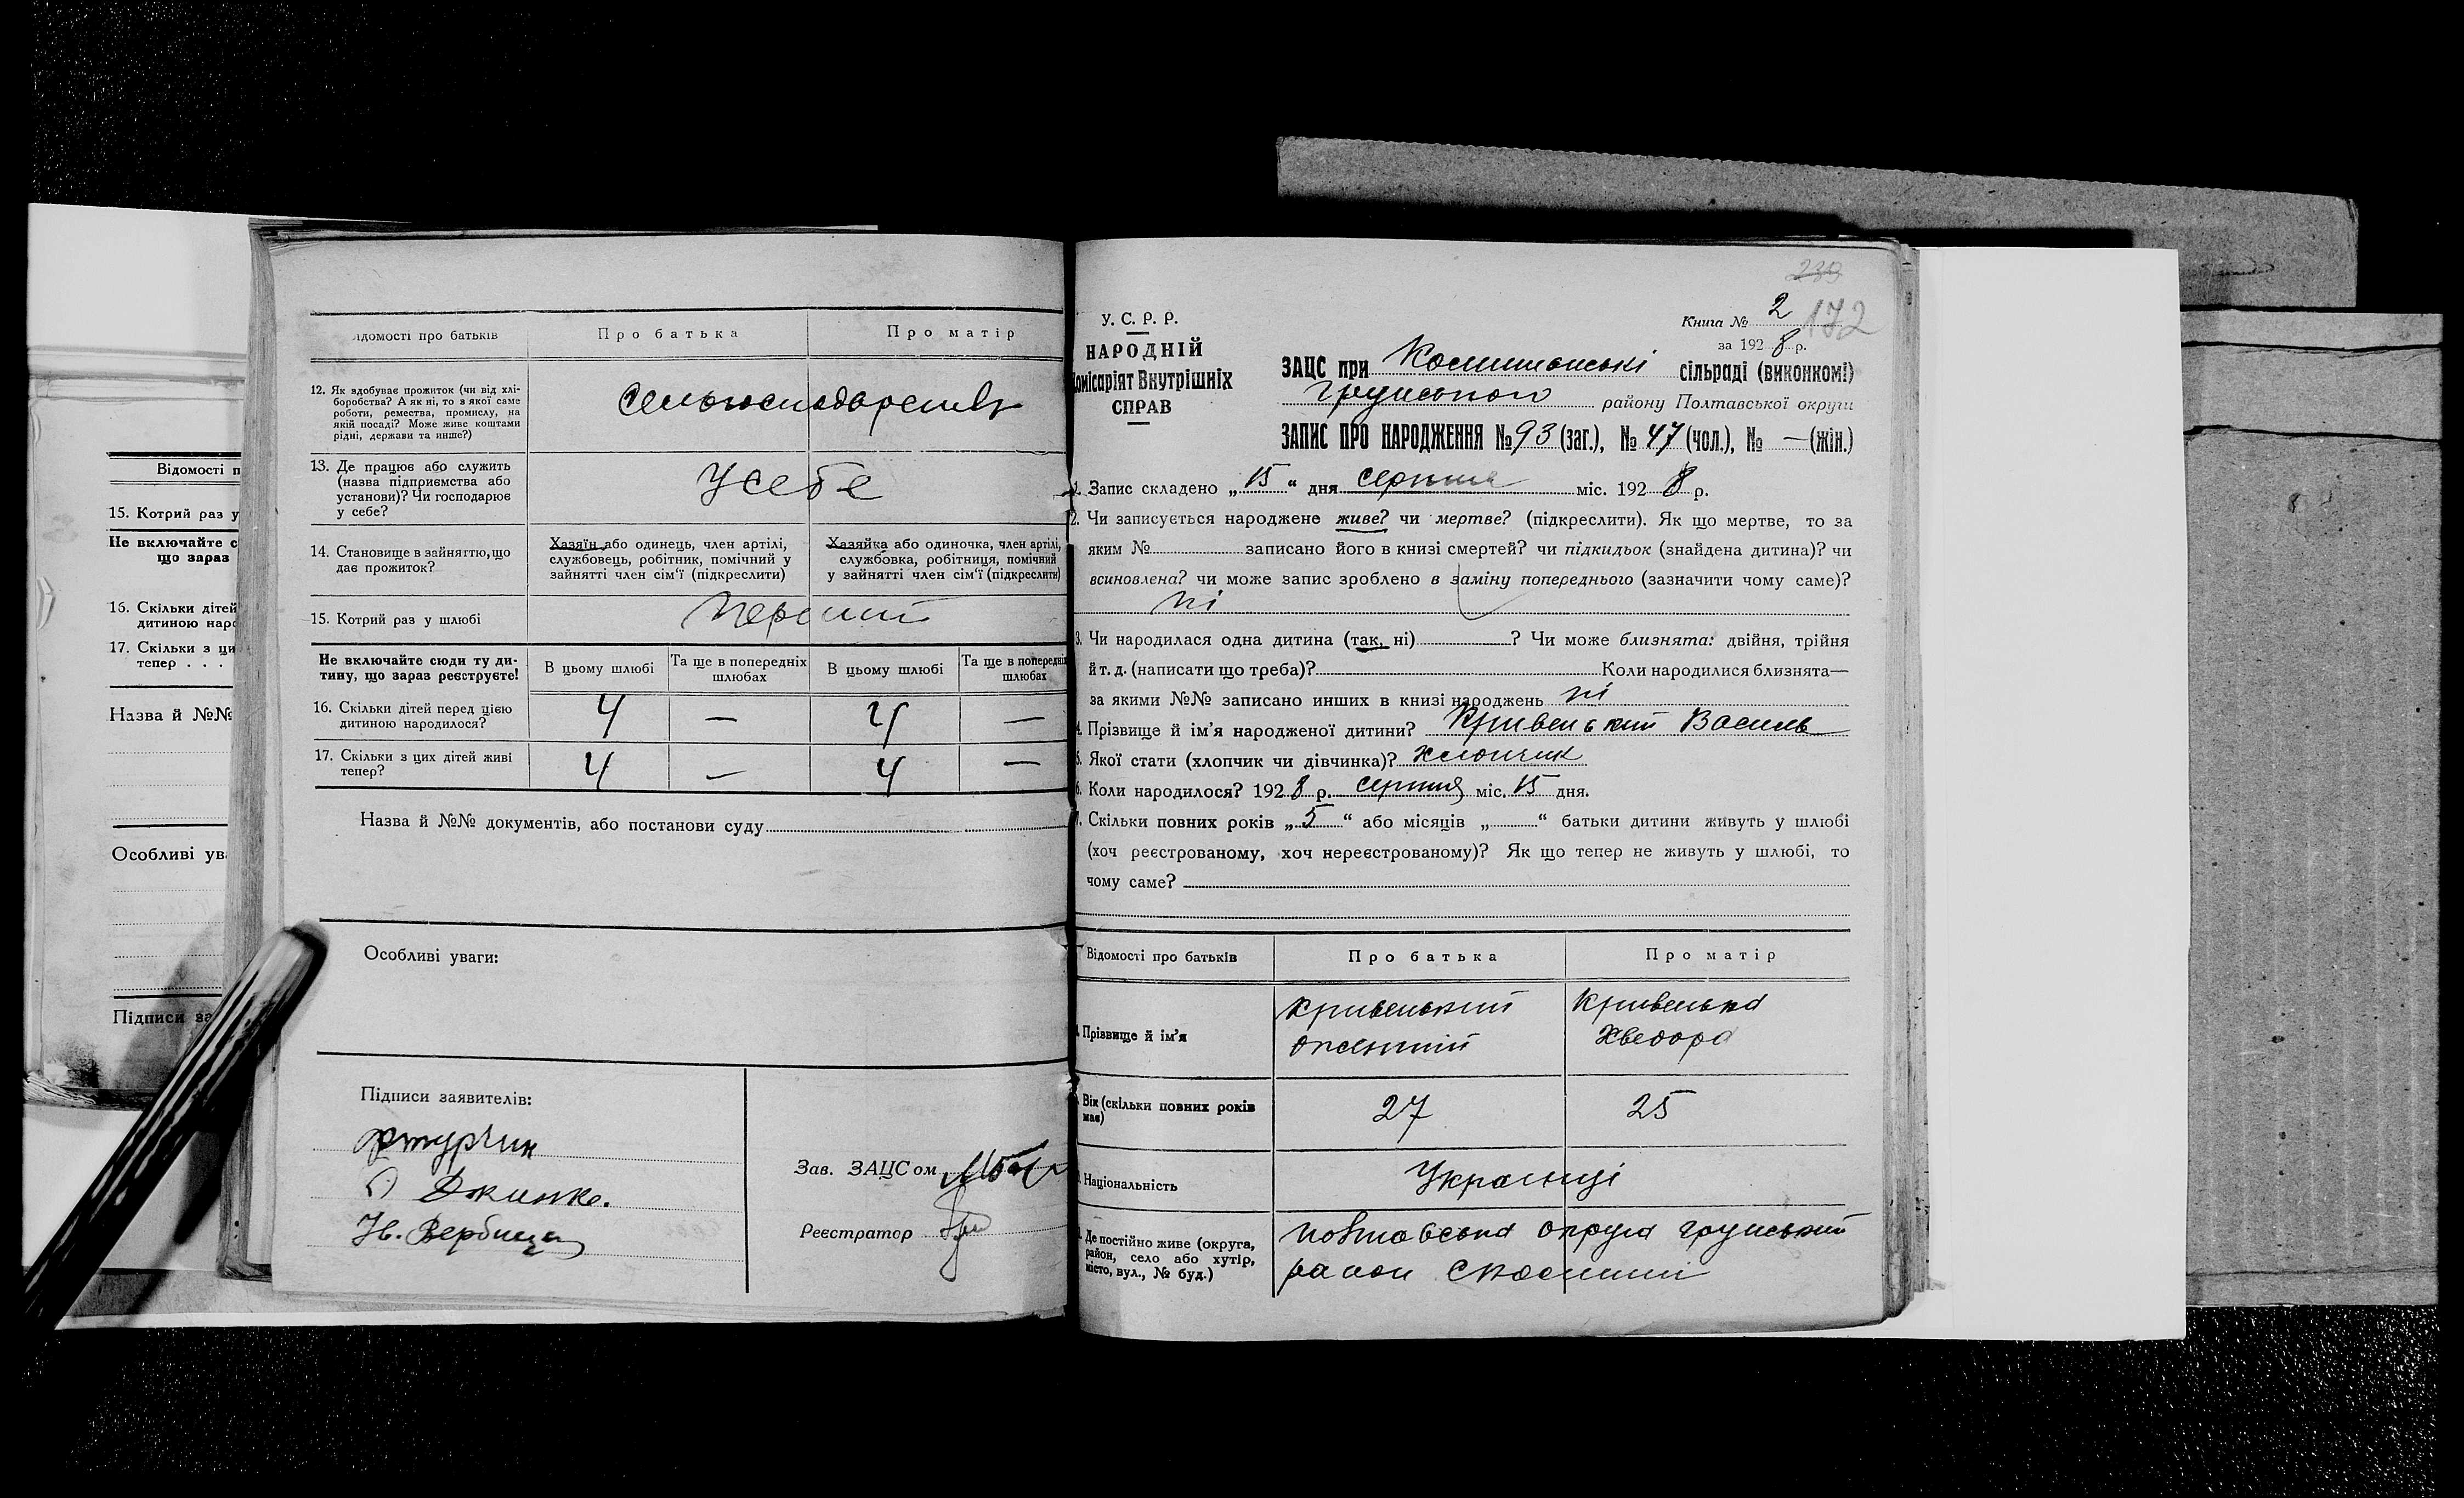 Відомості п
15. Котрий раз у
Не включайте с
що зараз
16. Скільки дітей
дитиною наро
17. Скільки з ци
тепер . . .
Назва й №№
Особливі ув
Підписи за
ідомості про батьків
Про батька
Про матір
12. Як здобуває прожиток (чи від хлі-
боробства? А як ні, то з якої саме
роботи, ремества, промислу, на
якій посаді? Може живе коштами
рідні, держави та инше?)
13. Де працює або служить
(назва підприємства або
установи)? Чи господарює
у себе?
Усебе
14. Становище в зайняттю, що
дає прожиток?
Хазяїн або одинець, член артілі,
службовець, робітник, помічний у
зайнятті член сім'ї (підкреслити)
Хазяйка або одиночка, член артілі,
службовка, робітниця, помічний
у зайнятті член сім'ї (підкреслити)
15. Котрий раз у шлюбі
Перший
Не включайте сюди ту ди-
тину, що зараз реєструєте!
В цьому шлюбі
Та ще в попередніх
шлюбах
В цьому шлюбі
Та ще в попередніх
шлюбах
16. Скільки дітей перед цією
дитиною народилося?
4 — 4 —
17. Скільки з цих дітей живі
тепер?
4 — 4 —
Назва й №№ документів, або постанови суду
Особливі уваги:
Підписи заявителів:
Ів. Вербицкий
Зав. ЗАЦСом
Реєстратор
239
172
У. С. Р. Р.
НАРОДНІЙ
омісаріят Внутрішніх
СПРАВ
Книга № 2
за 1928 р.
ЗАЦС при сільраді (виконкомі)
району Полтавської округи
ЗАПИС ПРО НАРОДЖЕННЯ № 93 (заг.), № 47 (чол.), № — (жін.)
1. Запис складено „15“ дня серпня міс. 1928 р.
2. Чи записується народжене живе? чи мертве? (підкреслити). Як що мертве, то за
яким № записано його в книзі смертей? чи підкидьок (знайдена дитина)? чи
всиновлена? чи може запис зроблено в заміну попереднього (зазначити чому саме)?
ні
3. Чи народилася одна дитина (так, ні) ? Чи може близнята: двійня, трійня
й т. д. (написати що треба)? Коли народилися близнята—
за якими №№ записано инших в книзі народжень ні
4. Прізвище й ім'я народженої дитини? Кривенький Василь
5. Якої стати (хлопчик чи дівчинка)? Хлопчик
6. Коли народилося? 1928 р. серпня міс. 15 дня.
7. Скільки повних років „5“ або місяців „ “ батьки дитини живуть у шлюбі
(хоч реєстрованому, хоч нереєстрованому)? Як що тепер не живуть у шлюбі, то
чому саме?
Відомості про батьків
Про батька
Про матір
Прізвище й ім'я
Кривенький
Кривенька
Хведора
Вік (скільки повних років
має)
27
25
Національність
Українці
Де постійно живе (округа,
район, село або хутір,
місто, вул., № буд.)
Полтавська округа грунський
район